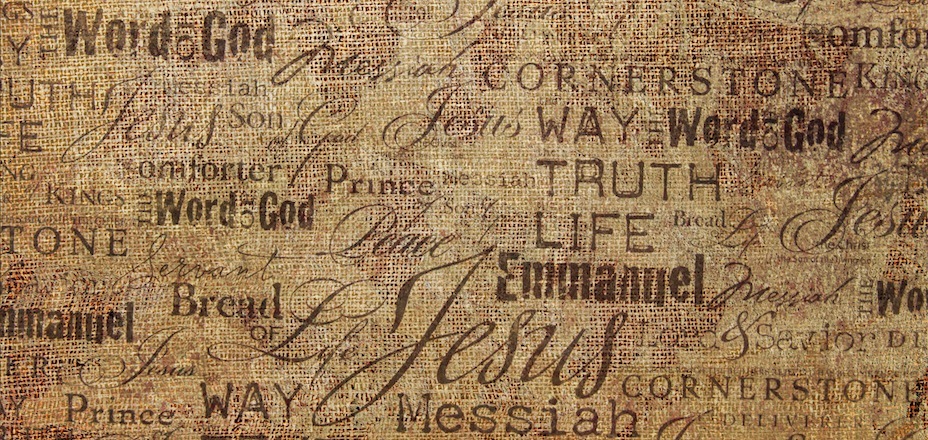 Word of God
Messiah
comfor
CORNERSTONE
KINGS
Messiah
Jesus
Son of God
Jesus
WAY
THE Word of God
comforter
Prince
Messiah
TRUTH
KINGS
THE Word of God
Jesus
LIFE
Bread
TONE
Peace
Servant
Emmanuel
Messiah
Bread
OF
Life
Jesus
THE Wo
mmanuel
Lord & Savior
Jesus
CORNERSTONE
Prince
WAY
Messiah
DELIVERER